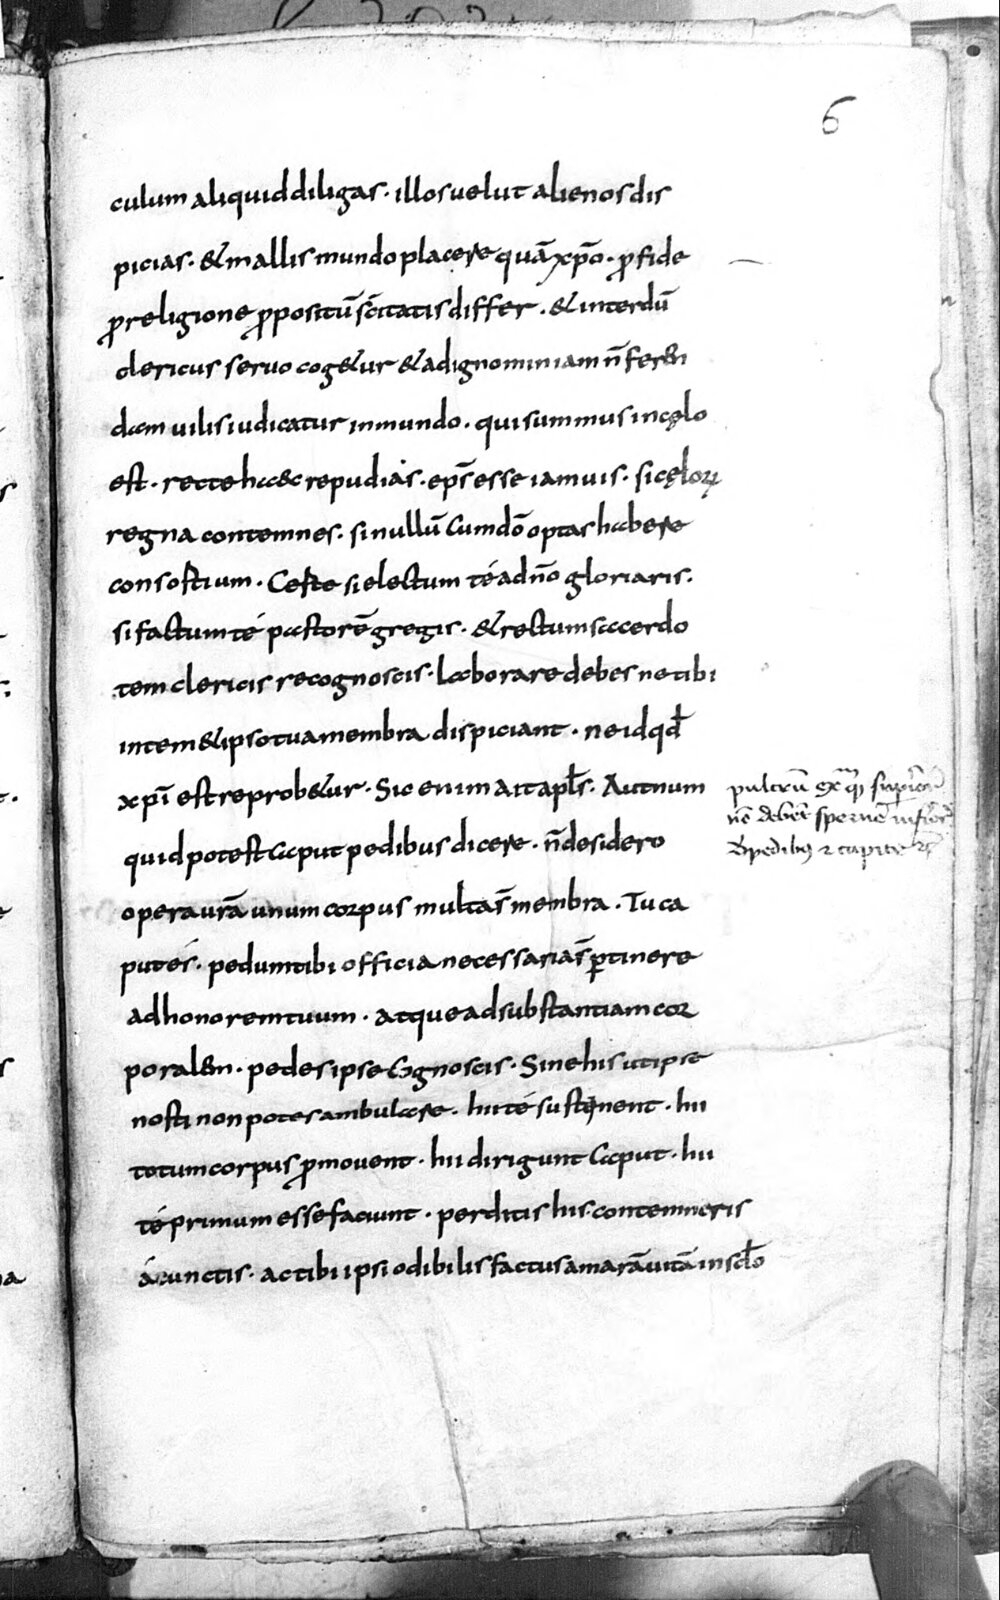 6
culum aliquid diligas · illos uelut alienos dis
picias · & mallis mundo placere quā xp̄o · ꝓ fide
ꝓ religione ꝓpositū sc̄itatis differ · & interdū
clericus seruo cog&ur & ad ignominiam n̄ feren
dam uilis iudicatur in mundo · qui summus in cęlo
est · recte haec repudias · ep̄s esse iam uis · si cęloꝝ
regna contemnes · si nullū cum dō optas habere
consortium · Certe si electum té a dn̄o gloriaris ·
si factum té pastorē gregis · & rectum sacerdo
tem clericis recognoscis · laborare debes ne tibi
intem& ipso tua membra dispiciant · ne id qđ
xp̄i est reprob&ur · Sic enim ait apl̄s · Aut num
quid potest caput pedibus dicere · n̄ desidero
opera ur̄a unum corpus multa s̄ membra · Tu ca
put és · pedum tibi officia necessaria s̄ ꝑtinere
ad honorem tuum · atque ad substantiam cor
poralem · pedes ipse cognoscis · Sine his ut ipse
nosti non potes ambulare · hii té sustinent · hii
totum corpus ꝓmouent · hii dirigunt caput · hii
té primum esse faciunt · perditis his contemneris
á cunctis · ac tibi ipsi odibilis factus amarā uitā in scł̄o
pulcrū
debent
pedibus capite